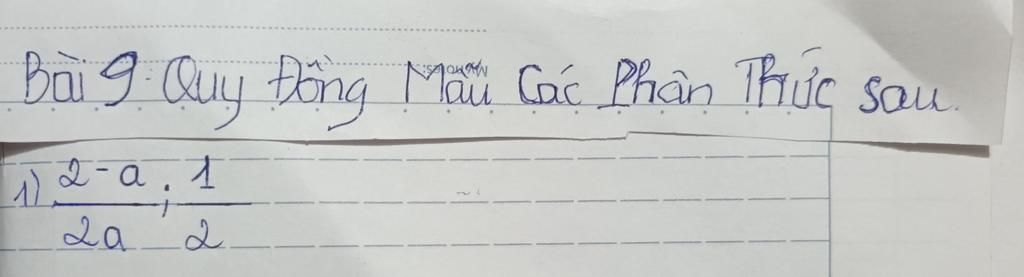 Bài 9: Quy Đồng Mẫu Các Phân Thức sau.
1) 2-a/2a ; 1/2